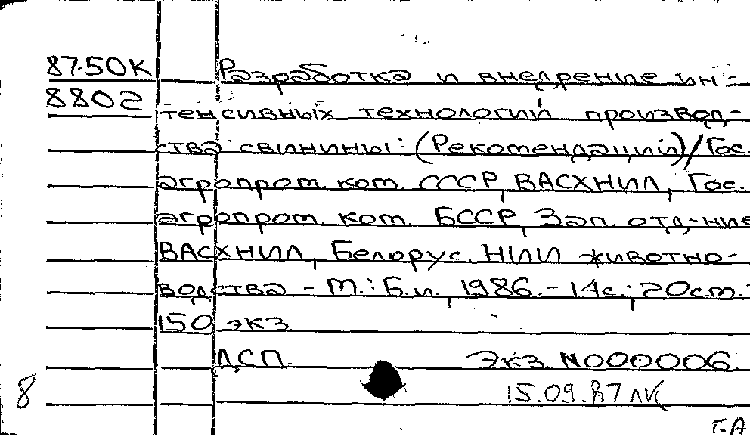 87-50К Разработка и внедрение ин-
8802 тенсивных технологий производ-
ства свинины: (Рекомендации)/Гос.
агропром. ком. СССР, ВАСХНИЛ, Гос.
агропром. ком. БССР, Зап. отд-ние
ВАСХНИЛ, Белорус. НИИ животно-
водства - М.: Б.и., 1986. - 14с.; 20см. -
150 экз
ДСП. Экз. N000006.
8 15.09.87
Б-А